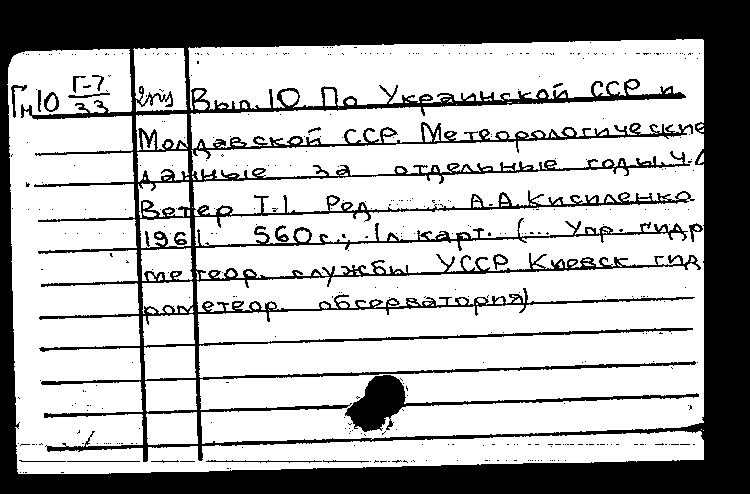 Гн10 Г-7/33 Вып. 10 По Украинской ССР и
Молдавской ССР. Метеорологические
данные за отдельные годы. Ч.
Ветер Т.1. Ред. ... А.А. Кисиленко
1961. 560 с.; 1 л. карт. (... Упр. гидр
метеор. службы УССР. Киевск гид
рометеор. обсерватория).